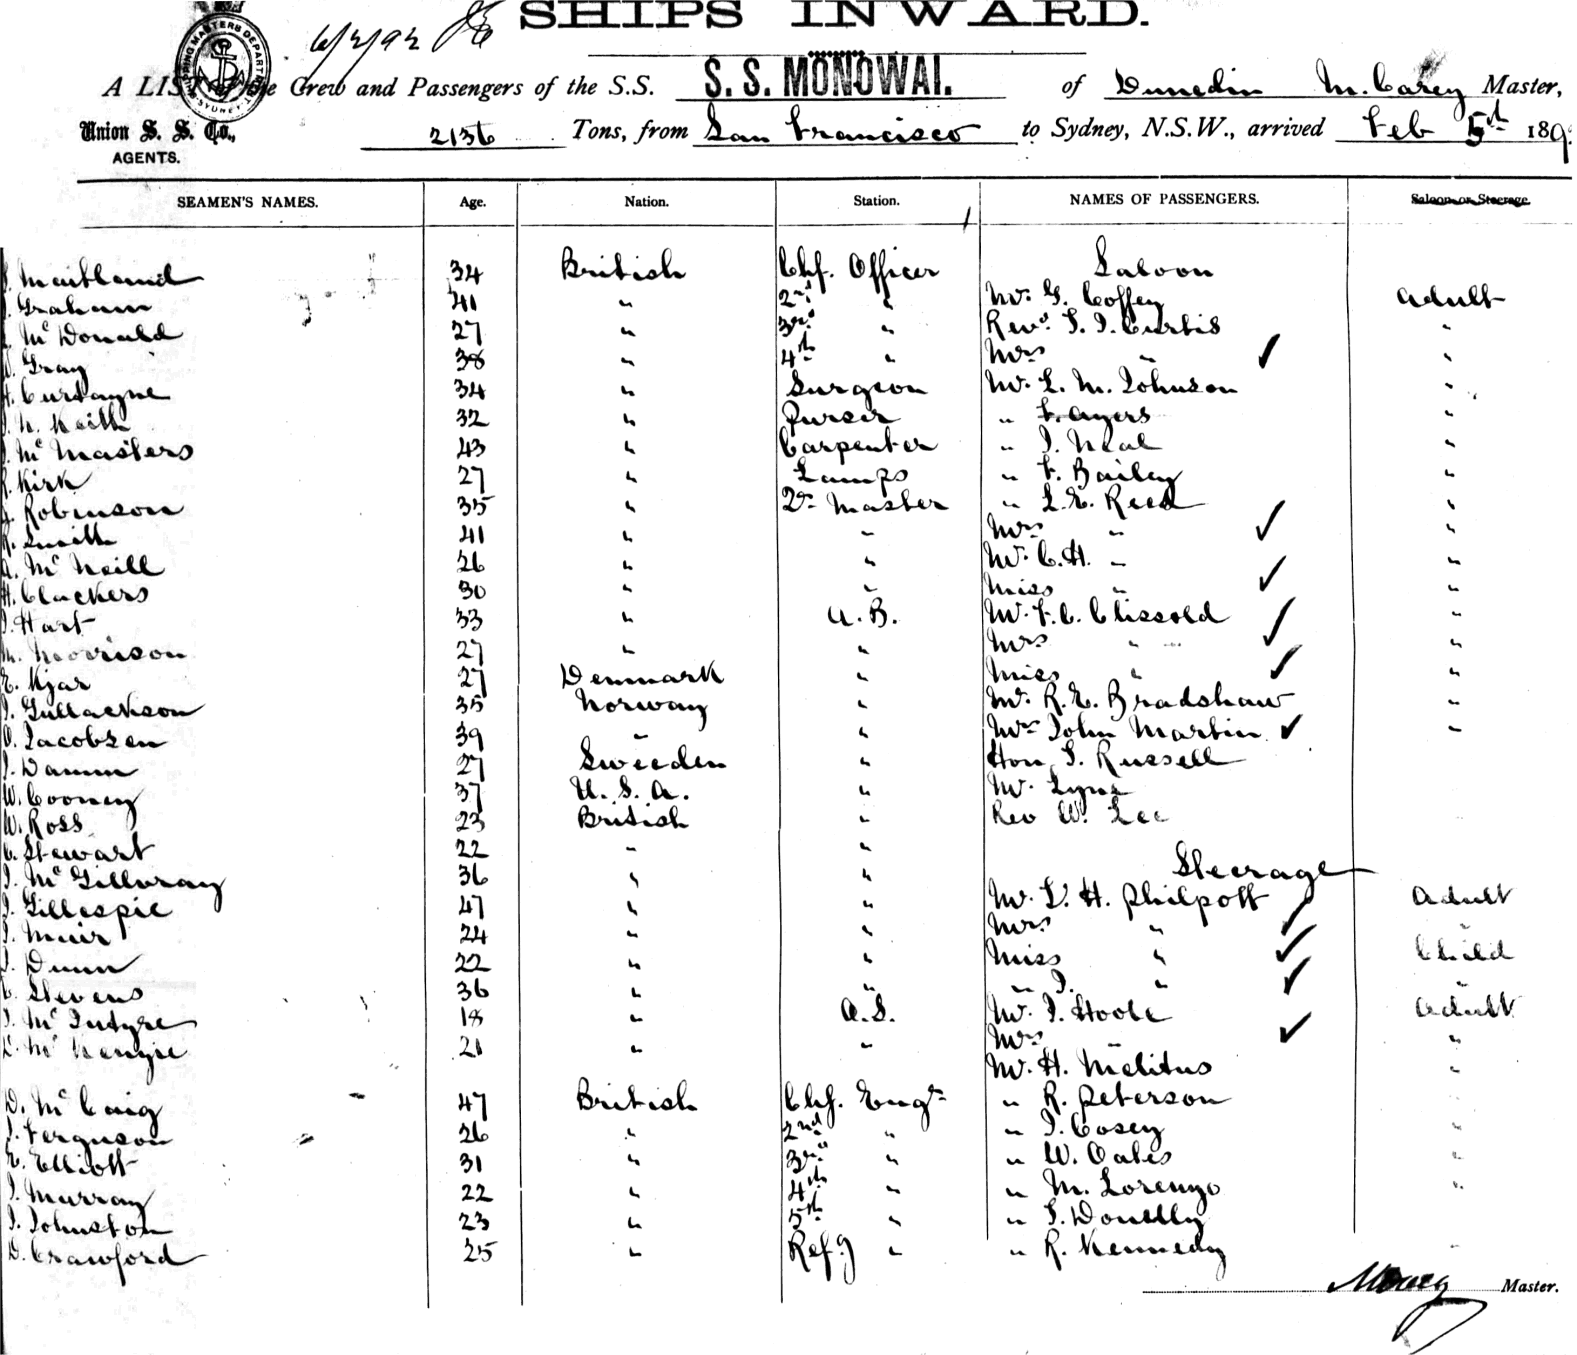 6/2/92
SHIPS INWARD.
A LIST of the Crew and Passengers of the S.S. S. S. MONOWAI. of Dunedin M. Carey Master,
Union S. S. Co., AGENTS. 2136 Tons, from San Francisco to Sydney, N.S.W., arrived Feb 5th 189
SEAMEN'S NAMES. Age. Nation. Station. NAMES OF PASSENGERS. Saloon or Steerage.
Maitland 34 British Chf. Officer Saloon
Graham 41 " 2nd " Mr. G. Coffey Adult
McDonald 27 " 3rd " Revd. S. J. Curtis "
Gray 38 " 4th " Mrs " "
Curtayne 34 " Surgeon Mr. L. M. Johnson "
Keith 32 " Purser " F. Ayers "
McMasters 43 " Carpenter " J. Neal "
R. Kirk 27 " Lamps " F. Bailey "
Robinson 35 " Qr Master " L. E. Reed "
R. Smith 41 " " Mrs " "
A. McNeill 26 " " Mr. C. H. " "
H. Clackers 30 " " Miss " "
J. Hart 33 " A. B. Mr. F. C. Clissold "
M. Morrison 27 " " Mrs " "
E. Kjar 27 Denmark " Miss " "
J. Gullackson 35 Norway " Mr. R. E. Bradshaw "
O. Jacobsen 39 " " Mrs John Martin "
J. Damm 27 Sweeden " Hon. J. Russell
W. Cooney 37 U. S. A. " Mr. Lyne
W. Ross 23 British " Rev W. Lee
C. Stewart 22 " "
J. McGillvray 36 " " Steerage
J. Gillespie 47 " " Mr. L. H. Philpott Adult
J. Muir 24 " " Mrs " "
J. Dunn 22 " " Miss " Child
C. Stevens 36 " " " J. " "
J. McIntyre 18 " A.S. Mr. J. Hoole Adult
McKenzie 21 " " Mrs " "
Mr. H. Melitus "
D. McCaig 47 British Chf. Engr " R. Peterson "
J. Ferguson 26 " 2nd " " J. Cosey "
E. Elliott 31 " 3rd " " W. Oates "
J. Murray 22 " 4th " " M. Lorenzo "
J. Johnston 23 " 5th " "
D. Crawford 25 " Refg " " R. Kennedy "
MCarey Master.